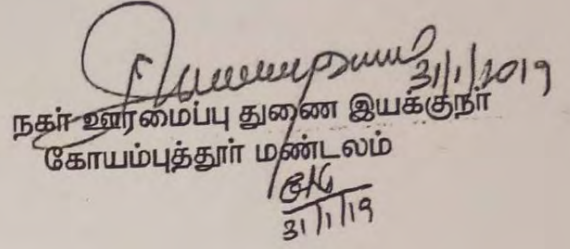 31/1/2019
நகர் ஊரமைப்பு துணை இயக்குநர்
கோயம்புத்தூர் மண்டலம்
31/1/19